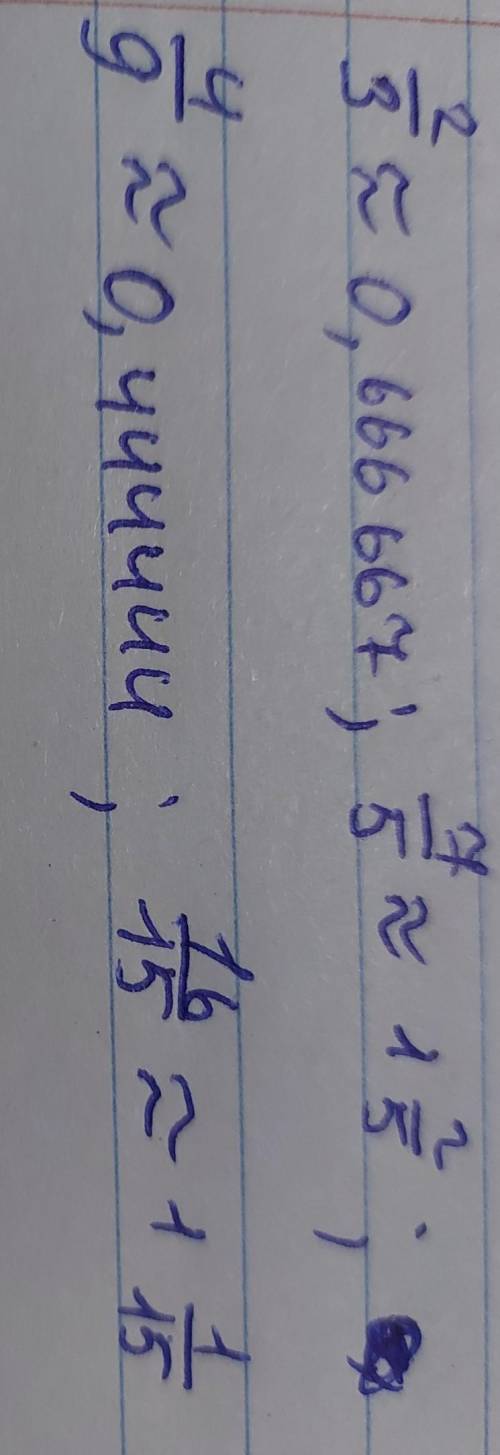 2/3 ≈ 0,666667; 7/5 ≈ 1 2/5;
4/9 ≈ 0,444444; 16/15 ≈ 1 1/15